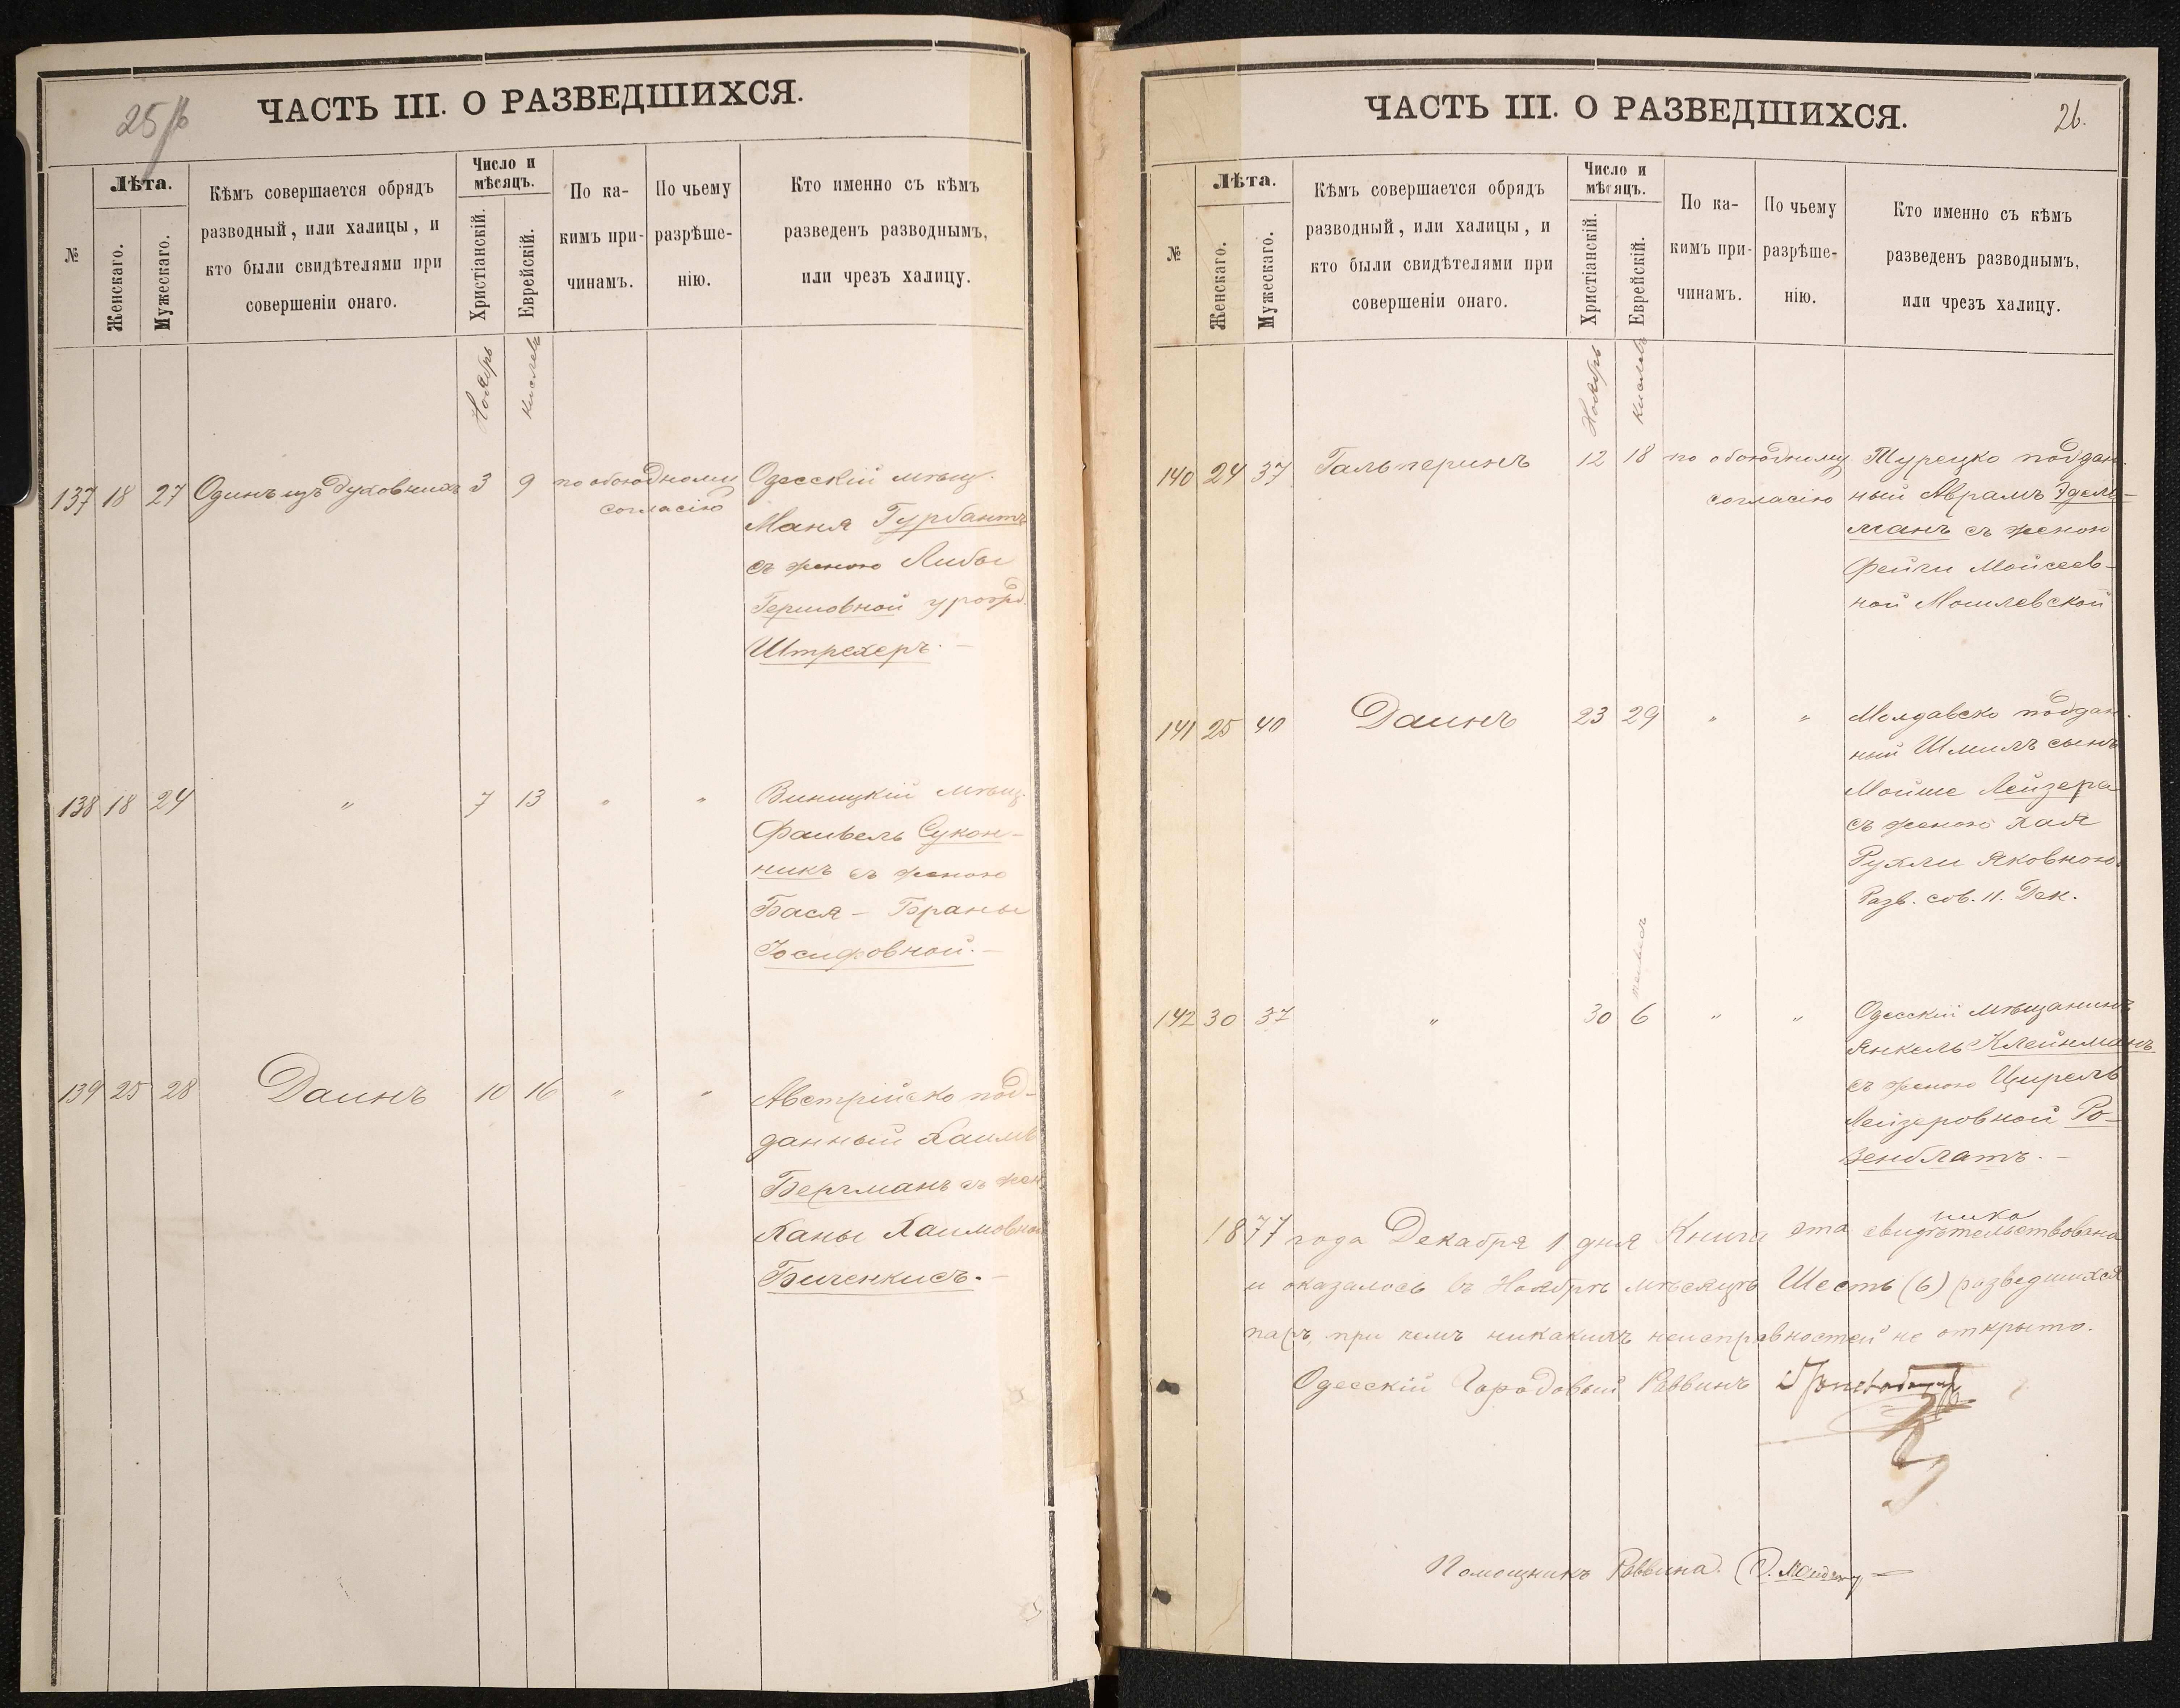 25/б
ЧАСТЬ III. О РАЗВЕДШИХСЯ.
№
Лѣта.
Женскаго.
Мужескаго.
Кѣмъ совершается обрядъ
разводный, или халицы, и
кто были свидѣтелями при
совершеніи онаго.
Число и
мѣсяцъ.
Христіанскій.
Еврейскій.
По ка-
кимъ при-
чинамъ.
По чьему
разрѣше-
нію.
Кто именно съ кѣмъ
разведенъ разводнымъ,
или чрезъ халицу.
Ноябрь
Кислевъ
137 18 27 Одинъ изъ духовныхъ 3 9 по обоюдному Одесскій мѣщ.
согласію
Маня Гурбантъ
съ женою Либы
Гершовной урожд.
Штрехеръ. —
138 18 24 " 7 13 " " Виницкій мѣщ.
Фаивель Сукон-
никъ съ женою
Бася - Браны
Іосифовной. —
139 25 28 Даинъ 10 16 " " Австрійско под-
данный Хаимъ
Бергманъ съ жен.
Ханы Хаимовной
Биченкисъ. —
26.
ЧАСТЬ III. О РАЗВЕДШИХСЯ.
№
Лѣта.
Женскаго.
Мужескаго.
Кѣмъ совершается обрядъ
разводный, или халицы, и
кто были свидѣтелями при
совершеніи онаго.
Число и
мѣсяцъ.
Христіанскій.
Еврейскій.
По ка-
кимъ при-
чинамъ.
По чьему
разрѣше-
нію.
Кто именно съ кѣмъ
разведенъ разводнымъ,
или чрезъ халицу.
Ноябрь
Кислевъ
140 24 37 Гальперинъ 12 18 по обоюдному Турецко поддан-
согласію ный Аврамъ Эдель-
манъ съ женою
Фейги Мойсеев-
ной Могилевской
141 25 40 Даинъ 23 29 " " Молдавско поддан-
ный Шмилъ сынъ
Мойше Лейзера
съ женою Хая
Рухли Яковною.
Разв. сов. 11. Дек.
142 30 37 " 30 6 " " Одесскій мѣщанинъ
Янкель Клейнманъ
съ женою Цирель
Лейзеровной Ро-
зенблатъ. —
1877 года Декабря 1 дня Книга эта свидѣтельствована
и оказалось въ Ноябрѣ мѣсяцѣ Шесть (6) разведшихся
паръ, при чемъ никакихъ неисправностей не открыто.
Одесскій Городовый Раввинъ
Помощникъ Раввина.